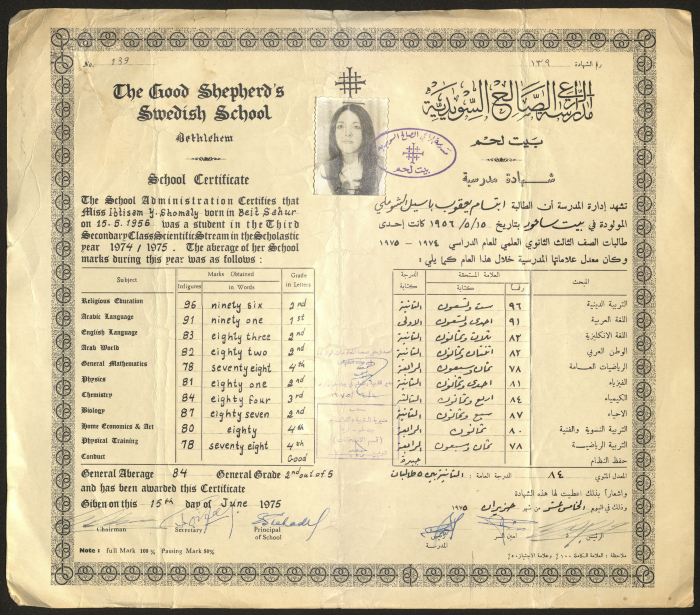 No. 139
The Good Shepherd's
Swedish School
Bethlehem
School Certificate
The School Administration Certifies that
Miss Ibtisam Y. Shomaly born in Beit Sahur
on 15.5.1956 was a student in the Third
Secondary Class Scientific Stream in the Scholastic
year 1974 / 1975. The average of her School
marks during this year was as follows :
Subject Marks Obtained Grade
Infigures in Words in Letters
Religious Education 96 ninety six 2nd
Arabic Language 91 ninety one 1st
English Language 83 eighty three 2nd
Arab World 82 eighty two 2nd
General Mathematics 78 seventy eight 4th
Physics 81 eighty one 2nd
Chemistry 84 eighty four 3rd
Biology 87 eighty seven 2nd
Home Economics & Art 80 eighty 4th
Physical Training 78 seventy eight 4th
Conduct Good
General Average 84 General Grade 2nd out of 5
and has been awarded this Certificate
Given on this 15th day of June 1975
Chairman Secretary Principal
of School
Note : full Mark 100 % Passing Mark 50%
رقم الشهادة ١٣٩
مدرسة الراعي الصالح السويدية
بيت لحم
شهادة مدرسية
تشهد إدارة المدرسة أن الطالبة ابتسام يعقوب باسيل الشوملي
المولودة في بيت ساحور بتاريخ ١٥/٥/١٩٥٦ كانت إحدى
طالبات الصف الثالث الثانوي العلمي للعام الدراسي ١٩٧٤ - ١٩٧٥
وكان معدل علاماتها المدرسية خلال هذا العام كما يلي :
المبحث العلامة المستحقة الدرجة
رقما كتابة كتابة
التربية الدينية ٩٦ ست وتسعون الثانية
اللغة العربية ٩١ احدى وتسعون الاولى
اللغة الانكليزية ٨٣ ثلاث وثمانون الثانية
الوطن العربي ٨٢ اثنتان وثمانون الثانية
الرياضيات العامة ٧٨ ثمان وسبعون الرابعة
الفيزياء ٨١ احدى وثمانون الثانية
الكيمياء ٨٤ اربع وثمانون الثالثة
الاحياء ٨٧ سبع وثمانون الثانية
التربية النسوية والفنية ٨٠ ثمانون الرابعة
التربية الرياضية ٧٨ ثمان وسبعون الرابعة
حفظ النظام جيدة
المعدل المئوي ٨٤ الدرجة العامة : الثانية من ٥ طالبات
واشعاراً بذلك اعطيت لها هذه الشهادة
وذلك في اليوم الخامس عشر من شهر حزيران ١٩٧٥
الرئيس أمين السر
المدرسة
ملاحظة : العلامة الكاملة ١٠٠٪ وعلامة الاجتياز ٥٠٪